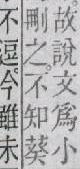 故說文爲小
刪之不知葵
不逞今雖未